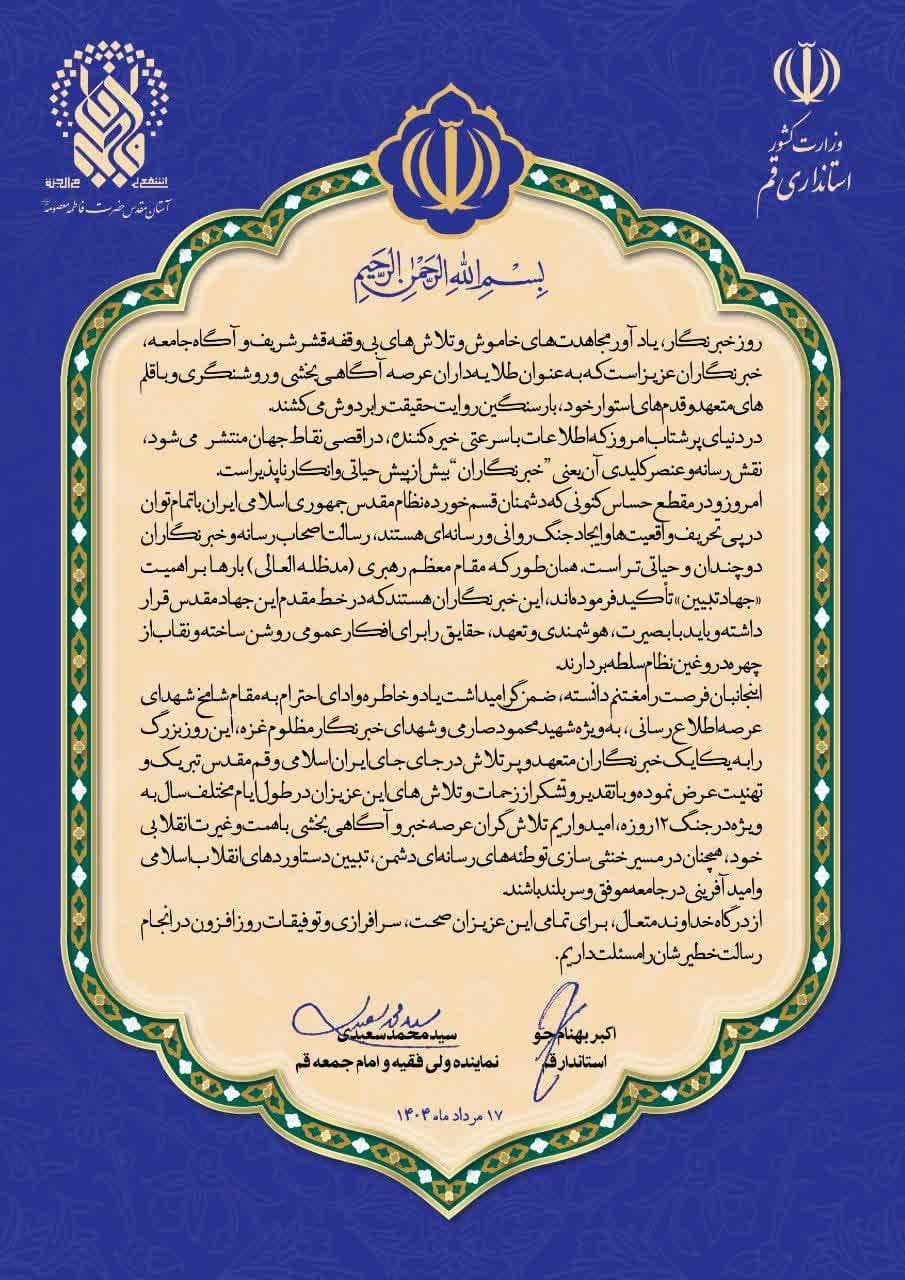 وزارت کشور
استانداری قم
آستان مقدس حضرت فاطمه معصومه
بِسْمِ اللهِ الرَّحْمٰنِ الرَّحِیمِ
روز خبرنگار، یادآور مجاهدت‌های خاموش و تلاش‌های بی‌وقفه قشر شریف و آگاه جامعه،
خبرنگاران عزیز است که به عنوان طلایه‌داران عرصه آگاهی بخشی و روشنگری و با قلم
های متعهد و قدم‌های استوار خود، بار سنگین روایت حقیقت را بر دوش می‌کشند.
در دنیای پرشتاب امروز که اطلاعات با سرعتی خیره‌کننده، در اقصی نقاط جهان منتشر می‌شود،
نقش رسانه و عنصر کلیدی آن یعنی "خبرنگاران" بیش از پیش حیاتی و انکارناپذیر است.
امروز و در مقطع حساس کنونی که دشمنان قسم خورده نظام مقدس جمهوری اسلامی ایران با تمام توان
در پی تحریف واقعیت‌ها و ایجاد جنگ روانی و رسانه‌ای هستند، رسالت اصحاب رسانه و خبرنگاران
دوچندان و حیاتی‌تر است. همان‌طور که مقام معظم رهبری (مدظله العالی) بارها بر اهمیت
«جهاد تبیین» تأکید فرموده‌اند، این خبرنگاران هستند که در خط مقدم این جهاد مقدس قرار
داشته و باید با بصیرت، هوشمندی و تعهد، حقایق را برای افکار عمومی روشن ساخته و نقاب از
چهره دروغین نظام سلطه بردارند.
اینجانبان فرصت را مغتنم دانسته، ضمن گرامیداشت یاد و خاطره و ادای احترام به مقام شامخ شهدای
عرصه اطلاع رسانی، به ویژه شهید محمود صارمی و شهدای خبرنگار مظلوم غزه، این روز بزرگ
را به یکایک خبرنگاران متعهد و پرتلاش در جای جای ایران اسلامی و قم مقدس تبریک و
تهنیت عرض نموده و با تقدیر و تشکر از زحمات و تلاش‌های این عزیزان در طول ایام مختلف سال به
ویژه در جنگ ۱۲ روزه، امیدواریم تلاش‌گران عرصه خبر و آگاهی بخشی با همت و غیرت انقلابی
خود، همچنان در مسیر خنثی سازی توطئه‌های رسانه‌ای دشمن، تبیین دستاوردهای انقلاب اسلامی
و امیدآفرینی در جامعه موفق و سربلند باشند.
از درگاه خداوند متعال، برای تمامی این عزیزان صحت، سرافرازی و توفیقات روزافزون در انجام
رسالت خطیرشان را مسئلت داریم.
اکبر بهنام‌جو
استاندار قم
سید محمد سعیدی
نماینده ولی فقیه و امام جمعه قم
۱۷ مرداد ماه ۱۴۰۴